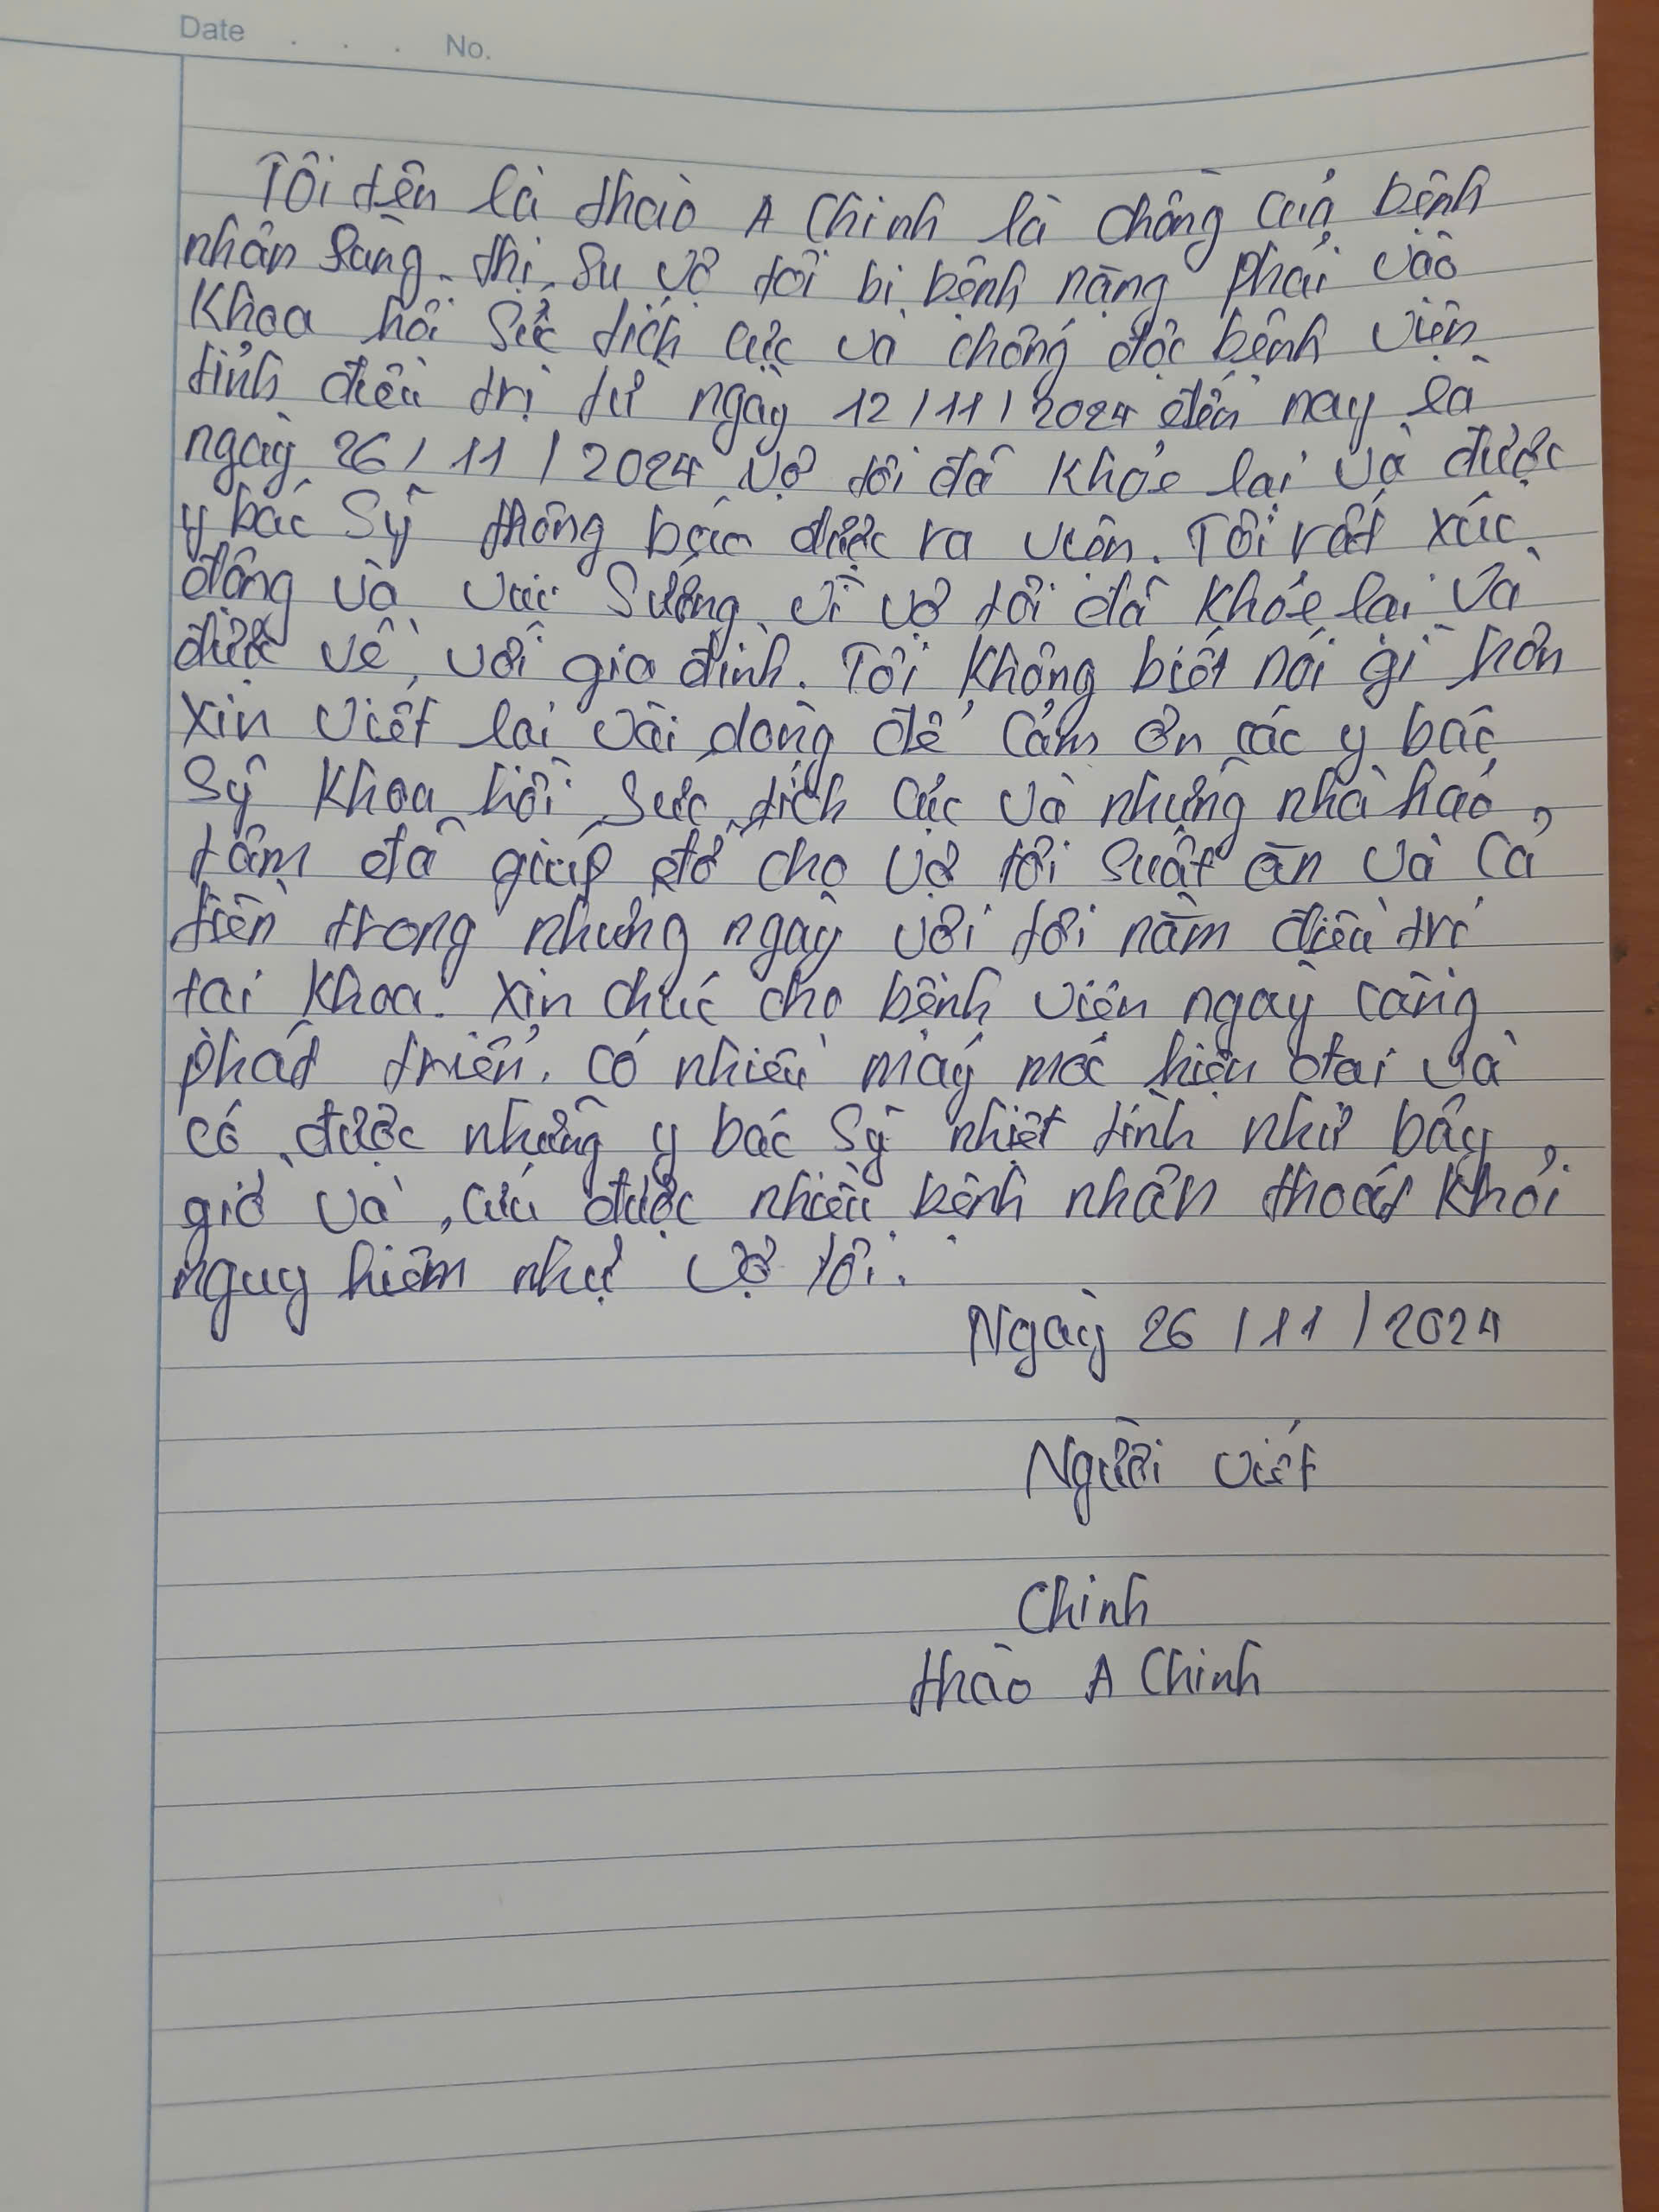 Date . . . No.
Tôi tên là thào A Chinh là chồng của bệnh
nhân Sùng thị Su vợ tôi bị bệnh nặng phải vào
Khoa hồi sức tích cực và chống độc bệnh viện
tỉnh điều trị từ ngày 12/11/2024 đến nay là
ngày 26/11/2024 vợ tôi đã khỏe lại và được
y bác sỹ thông báo được ra viện. Tôi rất xúc
động và vui sướng vì vợ tôi đã khỏe lại và
được về với gia đình. Tôi không biết nói gì hơn
xin viết lại vài dòng để cảm ơn các y bác
sỹ khoa hồi sức tích cực và những nhà hảo
tâm đã giúp đỡ cho vợ tôi suất ăn và cả
tiền trong những ngày với tôi nằm điều trị
tại khoa. xin chúc cho bệnh viện ngày càng
phát triển, có nhiều máy móc hiện đại và
có được những y bác sỹ nhiệt tình như bây
giờ và cứu được nhiều bệnh nhân thoát khỏi
nguy hiểm như vợ tôi.
Ngày 26/11/2024
Người viết
Chinh
thào A Chinh